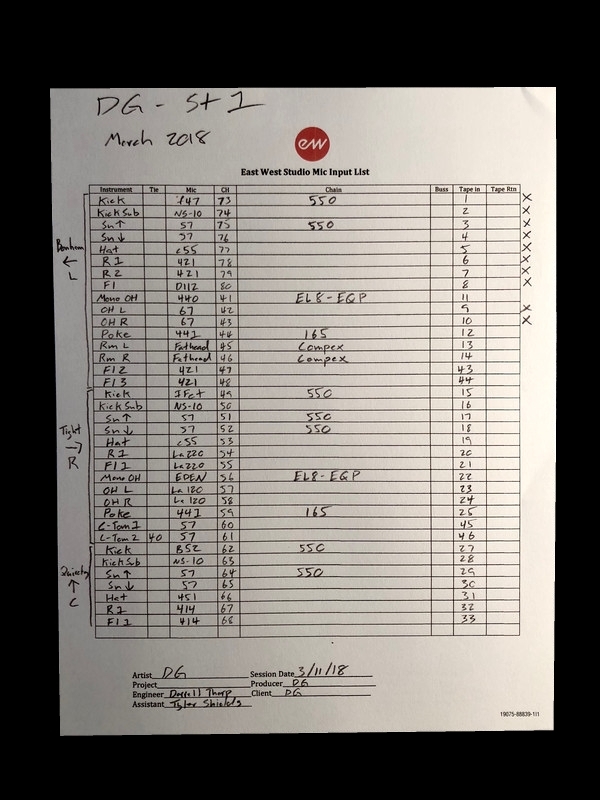 DG - St 1
March 2018
ew
East West Studio Mic Input List
Instrument Tie Mic CH Chain Buss Tape in Tape Rtn
Kick 47 73 550 1 X
Kick Sub NS-10 74 2 X
Sn ↑ 57 75 550 3 X
Sn ↓ 57 76 4 X
Hat c55 77 5 X
R 1 421 78 6 X
R 2 421 79 7 X
Fl D112 80 8 X
Mono OH 440 41 EL8-EQP 11
OH L 67 42 9 X
OH R 67 43 10 X
Poke 441 44 165 12
Rm L Fathead 45 Compex 13
Rm R Fathead 46 Compex 14
Fl 2 421 47 43
Fl 3 421 48 44
Bonham
←
L
Kick 49 550 15
Kick Sub NS-10 50 16
Sn ↑ 57 51 550 17
Sn ↓ 57 52 550 18
Hat c55 53 19
R 1 La220 54 20
Fl 1 La220 55 21
Mono OH EDEN 56 EL8-EQP 22
OH L La 120 57 23
OH R La 120 58 24
Poke 441 59 165 25
C-Tom 1 57 60 45
C-Tom 2 40 57 61 46
Tight
→
R
Kick B52 62 550 27
Kick Sub NS-10 63 28
Sn ↑ 57 64 550 29
Sn ↓ 57 65 30
Hat 451 66 31
R 1 414 67 32
Fl 1 414 68 33
↑
C
Artist DG Session Date 3/11/18
Project Producer DG
Engineer Darrell Thorp Client DG
Assistant Tyler Shields
19075-88839-1I1